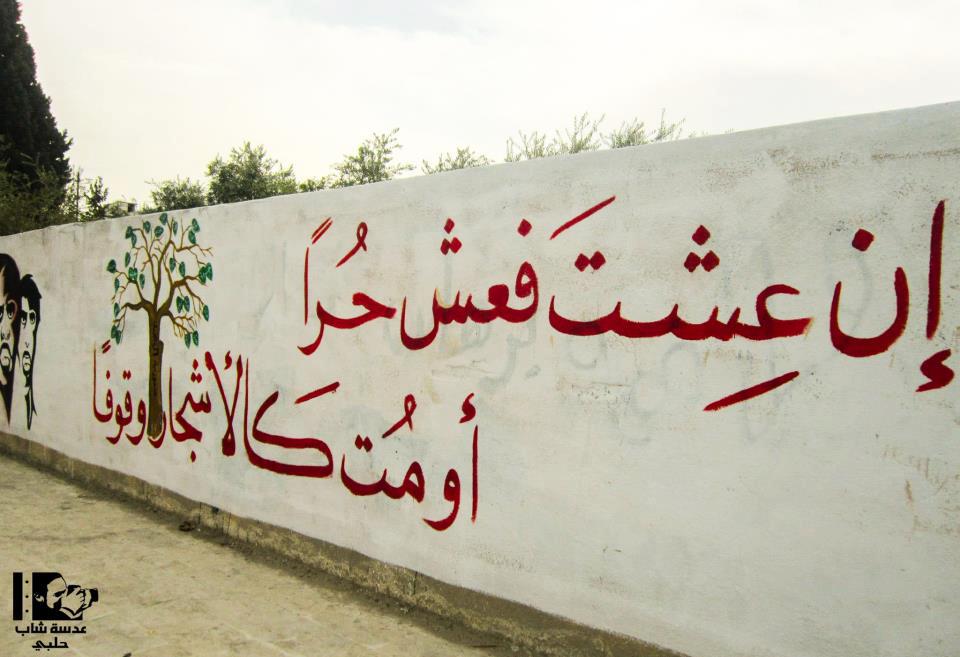 إن عِشتَ فعش حُراً
أو مُت كَالأشجار وقوفاً
عدسة شاب
حلبي